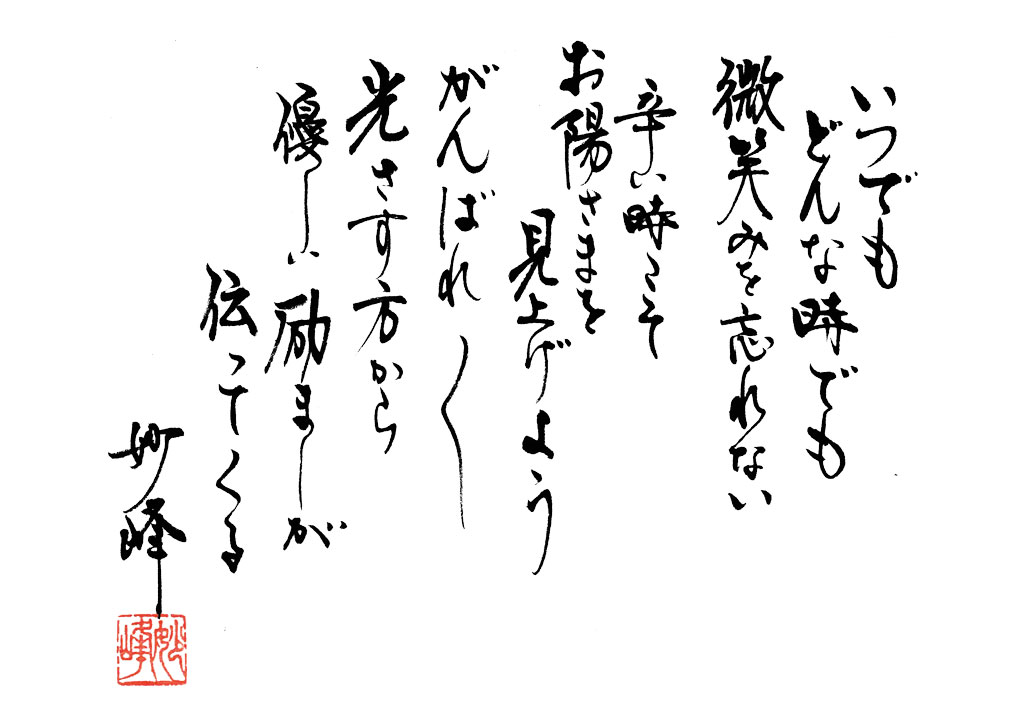 いつでも
どんな時でも
微笑みを忘れない
辛い時こそ
お陽さまを
見上げよう
がんばれ〱
光さす方から
優しい励ましが
伝ってくる
妙峰
妙峰